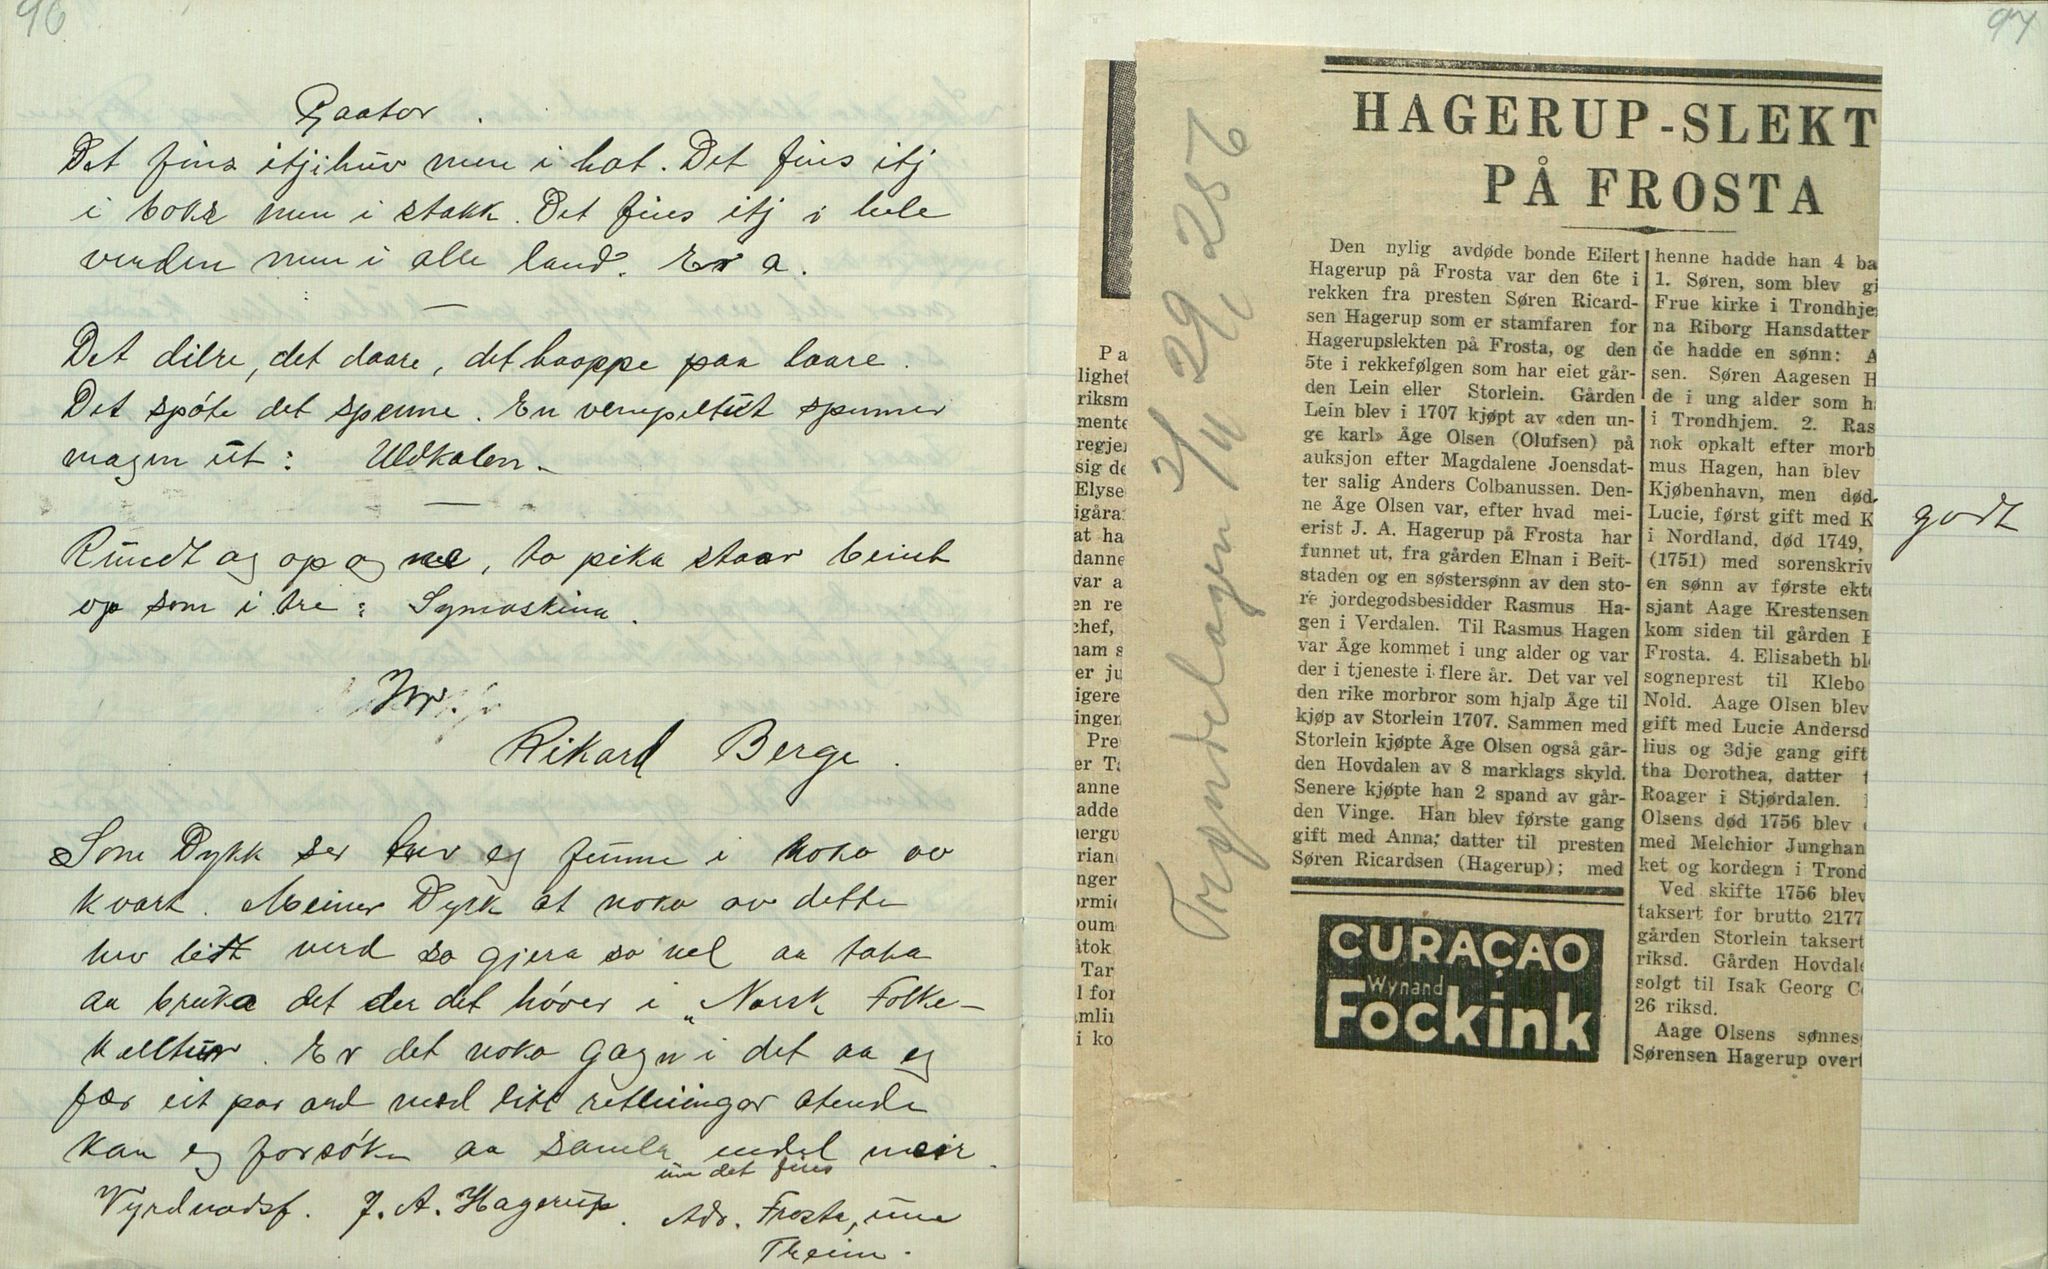 96
Gaator.
Det fins itj i huv men i hat. Det fins itj
i boks men i stakk. Det fins itj i hele
verden men i alle land. Er a.
Det dilre, det daare, det haappe paa laare.
Det spöte det spenne. En
magen ut: Uldkalen.
Rundt og op og ne, to pika staar beint
op som i tre: Symaskina.
Hr.
Rikard Berge.
Som Dykk ser hev eg funne i noko av
kvart. Meiner Dykk at noko av dette
hev litt verd so gjera so vel aa taka
aa bruka det der det höver i „Norsk Folke-
kultur. Er det noko gagn i det aa eg
fær eit par ord med litt retleiingar
kan eg forsöke aa samla endel meir
um det fins
Vyrdnadsf. J. A. Hagerup. Adr. Frosta,
Theim.
97
HAGERUP-SLEKT
PÅ FROSTA
Den nylig avdøde bonde Eilert
Hagerup på Frosta var den 6te i
rekken fra presten Søren Ricard-
sen Hagerup som er stamfaren for
Hagerupslekten på Frosta, og den
5te i rekkefølgen som har eiet går-
den Lein eller Storlein. Gården
Lein blev i 1707 kjøpt av «den un-
ge karl» Åge Olsen (Olufsen) på
auksjon efter Magdalene Joensdat-
ter salig Anders Colbanussen. Den-
ne Åge Olsen var, efter hvad mei-
erist J. A. Hagerup på Frosta har
funnet ut, fra gården Elnan i Beit-
staden og en søstersønn av den sto-
re jordegodsbesidder Rasmus Ha-
gen i Verdalen. Til Rasmus Hagen
var Åge kommet i ung alder og var
der i tjeneste i flere år. Det var vel
den rike morbror som hjalp Åge til
kjøp av Storlein 1707. Sammen med
Storlein kjøpte Åge Olsen også går-
den Hovdalen av 8 marklags skyld.
Senere kjøpte han 2 spand av går-
den Vinge. Han blev første gang
gift med Anna, datter til presten
Søren Ricardsen (Hagerup); med
CURAÇAO
Wynand
Fockink
henne hadde han 4 ba
1. Søren, som blev gi
Frue kirke i Trondhje
na Riborg Hansdatter
de hadde en sønn: A
sen. Søren Aagesen H
de i ung alder som h
i Trondhjem. 2. Ras
nok opkalt efter morb
mus Hagen, han blev
Kjøbenhavn, men død
Lucie, først gift med K
i Nordland, død 1749,
(1751) med sorenskriv
en sønn av første ekt
sjant Aage Krestensen
kom siden til gården
Frosta. 4. Elisabeth bl
sogneprest til Klebo
Nold. Aage Olsen blev
gift med Lucie Andersd
lius og 3dje gang gift
tha Dorothea, datter
Roager i Stjørdalen.
Olsens død 1756 blev
med Melchior Junghan
ket og kordegn i Trond
Ved skifte 1756 blev
taksert for brutto 2177
gården Storlein taksert
riksd. Gården Hovdal
solgt til Isak Georg C
26 riksd.
Aage Olsens sønnes
Sørensen Hagerup overt
Trøndelagen 2/11 29, 256
godt
Pa
lighet
riksm
mente
regjer
sig de
Elyse
igåra
at ha
danne
var a
en re
chef,
nam s
er ju
igere
inger
Pre
er Ta
anne
adde
nergu
rian
nger
ormi
oum
åtok
Tar
l for
mlin
i ko